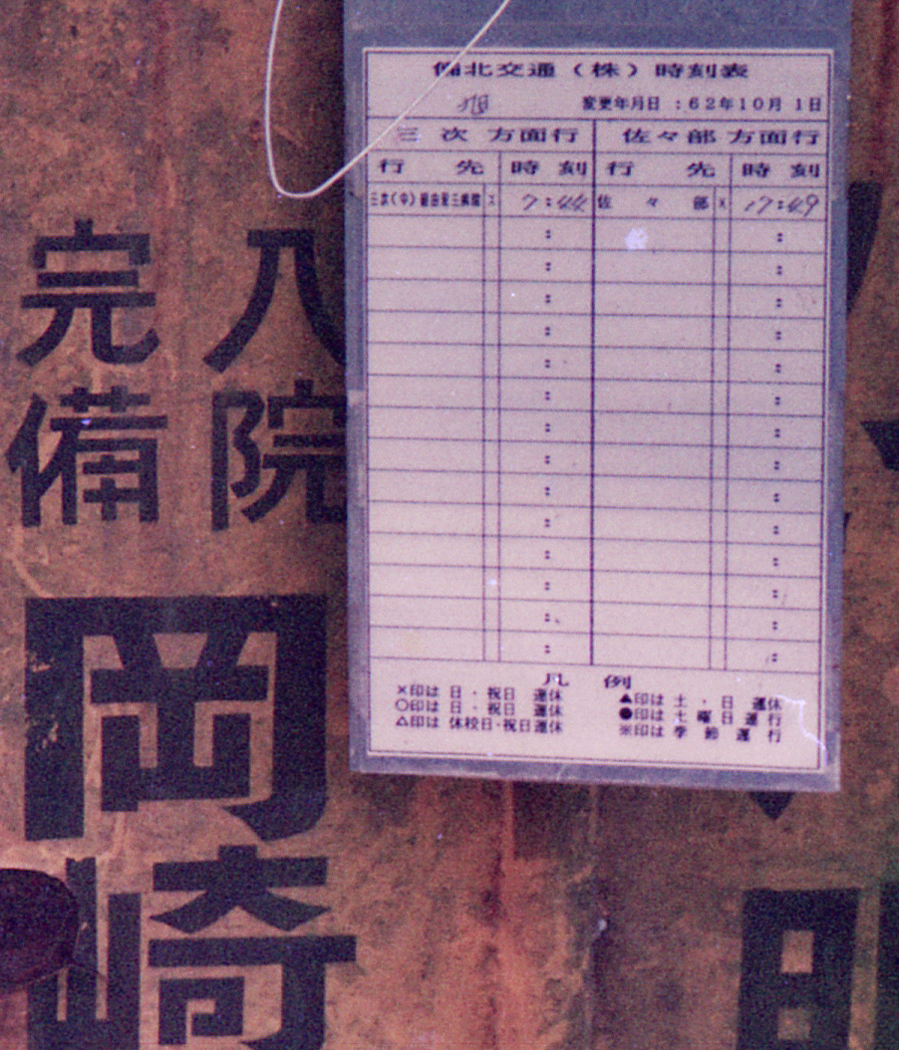 備北交通（株）時刻表
変更年月日：62年10月 1日
三次方面行 佐々部方面行
行先 時刻 行先 時刻
三次(中)経由至三病院 × 7:44 佐々部 × 17:49
凡例
×印は 日・祝日 運休
○印は 日・祝日 運休
△印は 休校日・祝日運休
▲印は 土・日 運休
●印は 土曜日運行
※印は季節運行
入院
完備
岡崎